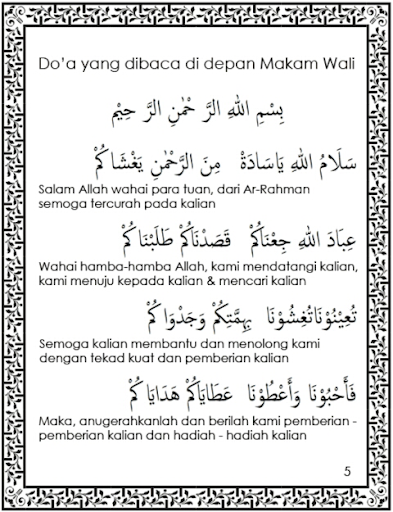 Do'a yang dibaca di depan Makam Wali
بِسْمِ اللهِ الرَّ حْمٰنِ الرَّ حِيْمِ
سَلَامُ اللهِ يَاسَادَةْ مِنَ الرَّحْمٰنِ يَغْشَاكُمْ
Salam Allah wahai para tuan, dari Ar-Rahman
semoga tercurah pada kalian
عِبَادَ اللهِ جِعْنَاكُمْ قَصَدْنَاكُمْ طَلَبْنَا كُمْ
Wahai hamba-hamba Allah, kami mendatangi kalian,
kami menuju kepada kalian & mencari kalian
تُعِيْنُوْنَاتُغِشُوْنَا بِهِمَّتِكُمْ وَجَدْوَا كُمْ
Semoga kalian membantu dan menolong kami
dengan tekad kuat dan pemberian kalian
فَأَحْبُوْنَا وَأَعْطُوْنَا عَطَايَاكُمْ هَدَايَا كُمْ
Maka, anugerahkanlah dan berilah kami pemberian -
pemberian kalian dan hadiah - hadiah kalian
5